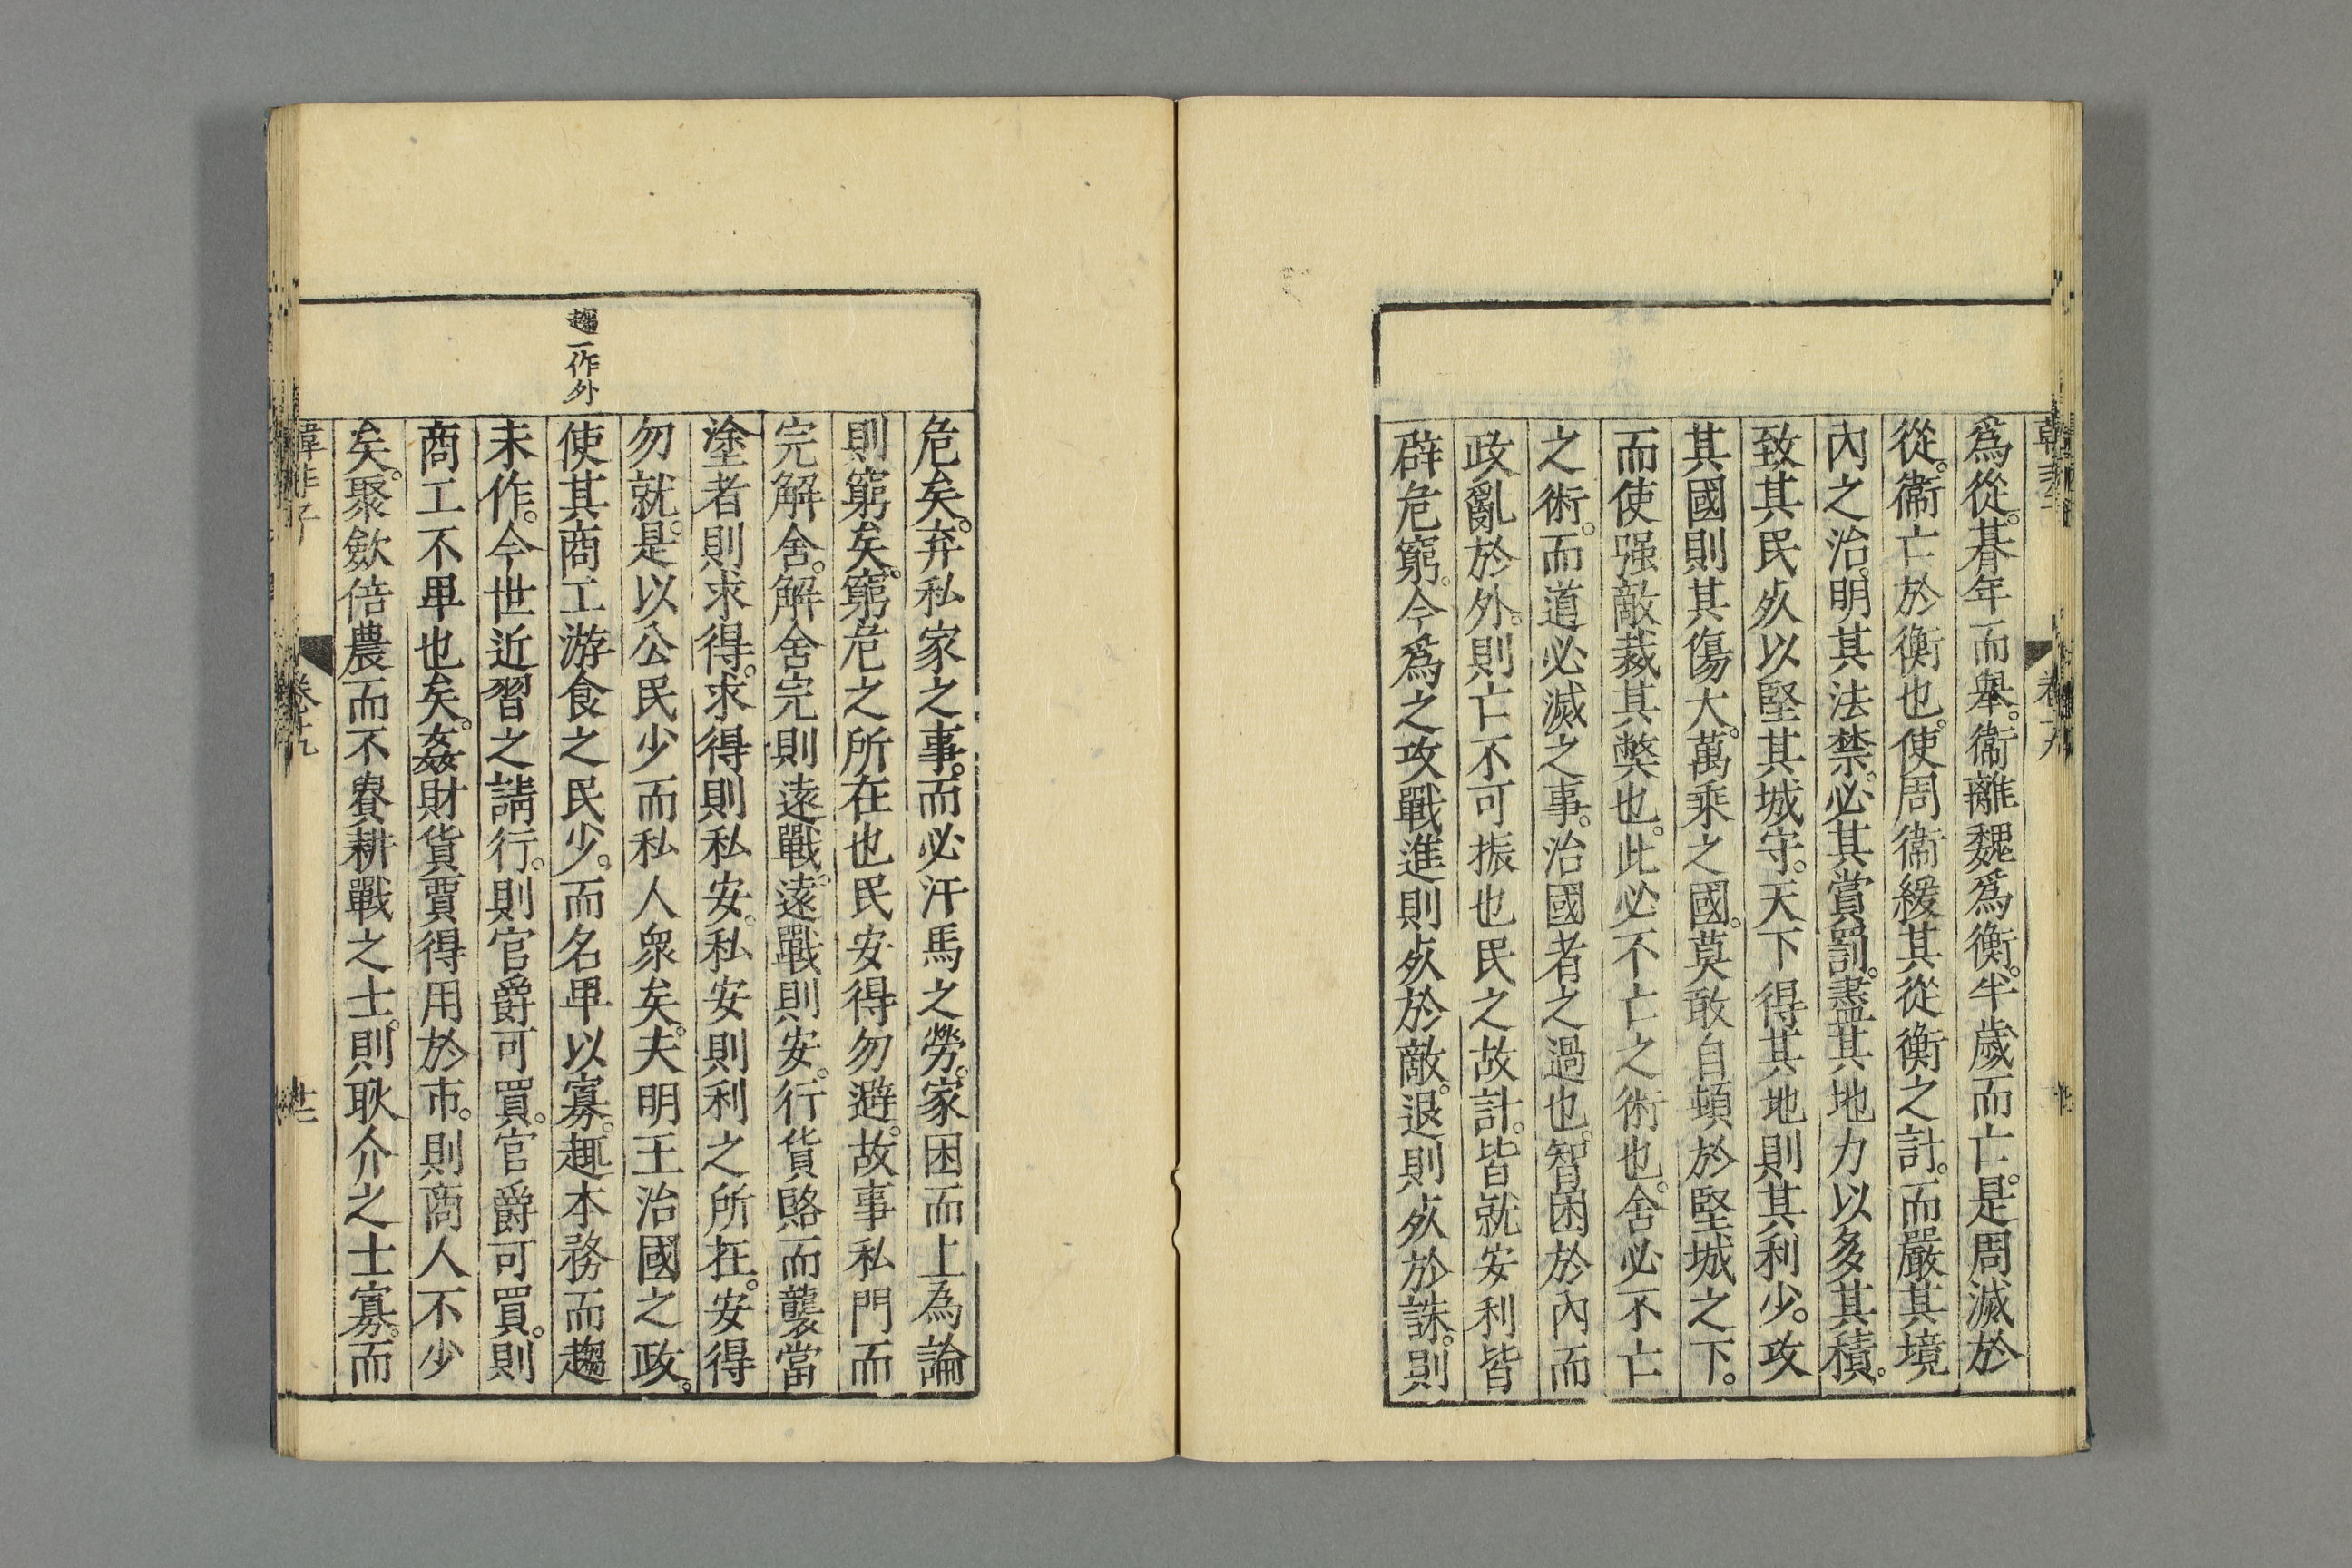 爲從。朞年而舉。衞離魏爲衡。半歲而亡。是周滅於
從。衞亡於衡也。使周衞緩其從衡之計。而嚴其境
內之治。明其法禁。必其賞罰。盡其地力以多其積。
致其民歺以堅其城守。天下得其地則其利少。攻
其國則其傷大。萬乘之國。莫敢自頓於堅城之下。
而使强敵裁其弊也。此必不亡之術也。舍必不亡
之術。而道必滅之事。治國者之過也。智困於內而
政亂於外。則亡不可振也民之故計。皆就安利皆
辟危窮。今爲之攻戰進則死於敵。退則死於誅。則
危矣。弃私家之事。而必汗馬之勞。家困而上為論
則窮矣。窮危之所在也民安得勿避。故事私門而
完解舍。解舍完則遠戰。遠戰則安。行貨賂而襲當
塗者則求得。求得則私安。私安則利之所在。安得
勿就。是以公民少而私人衆矣。夫明王治國之政。
使其商工游食之民少。而名卑以寡。趣本務而趨
趨一作外
末作。今世近習之請行。則官爵可買。官爵可買。則
商工不卑也矣。姦財貨賈得用於市。則商人不少
矣。聚歛倍農而不賽耕戰之士。則耿介之士寡。而
韓非子 卷十九 廿二